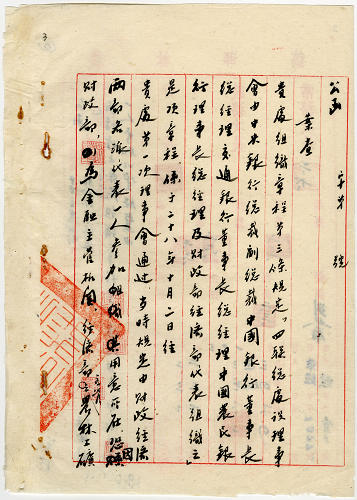 3
公函 字第 號
業查
貴處組織章程第三條規定"四聯總處設理事
會由中央銀行總裁副總裁中國銀行董事長
總經理交通銀行董事長總經理中國農民銀
行理事長總經理及財政部經濟部代表組織之"
是項章程係于二十八年十月二日經
貴處第一次理事會通過當時規定由財政經濟
兩部各派代表一人參加組織其用意所在恐因
財政部為金融主管機關經濟部主農林工礦